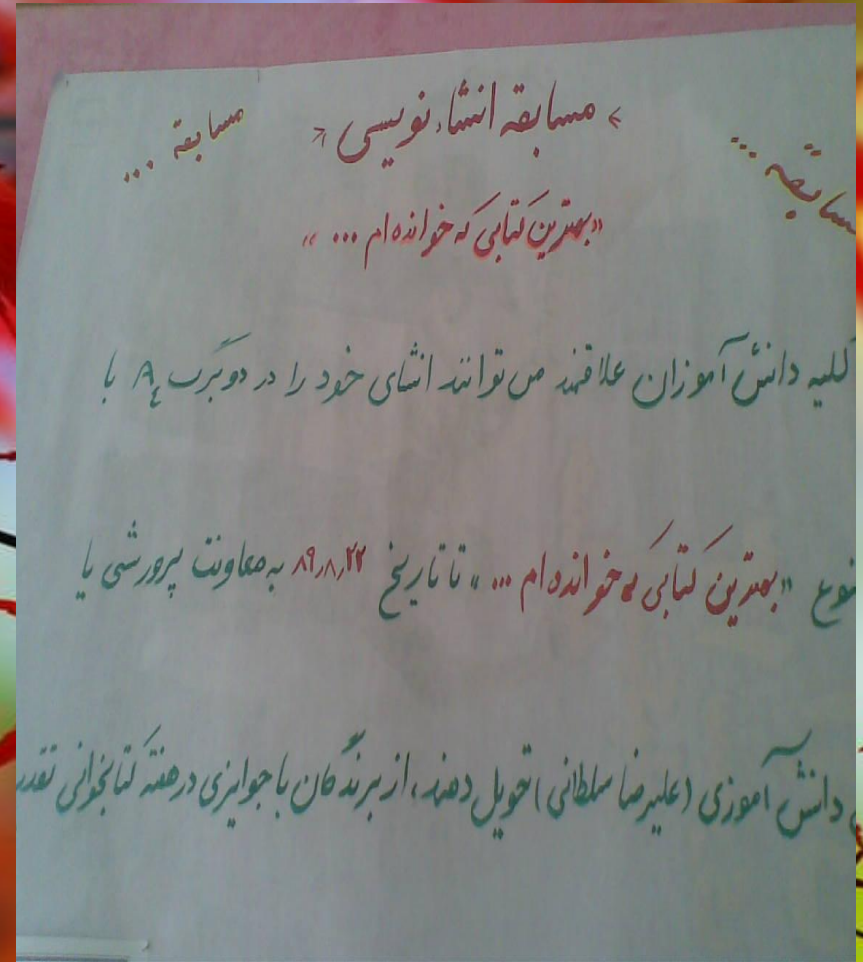 مسابقه ...
> مسابقه انشاء نویسی <
مسابقه ...
«بهترین کتابی که خوانده ام ... »
کلیه دانش آموزان علاقمند می توانند انشای خود را در دو برگ A٤ با
«بهترین کتابی که خوانده ام ... » تا تاریخ ۸۹٫۸٫۲۲ به معاونت پرورشی یا
دانش آموزی (علیرضا سلطانی) تحویل دهند، از برندگان با جوایزی در هفته کتابخوانی